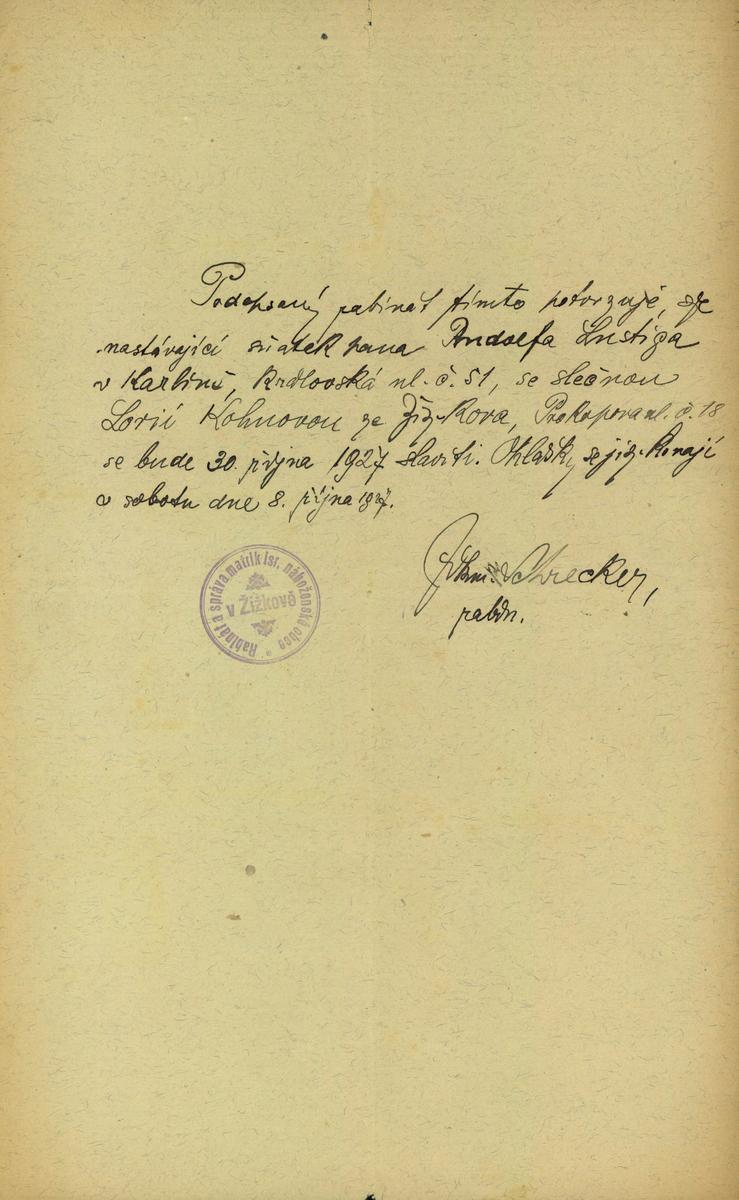 Podepsaný rabinát tímto potvrzuje, že
nastávající sňatek pana Rudolfa Lustiga
v Karlíně, Královská ul. č. 51, se slečnou
Lorií Kohnovou ze Žižkova, Prokopova ul. č. 18
se bude 30. října 1927 slaviti. Ohlášky se již konají
v sobotu dne 8. října 1927.
Schrecker,
rabín.
Rabinát a správa matrik isr. náboženské obce
v Žižkově